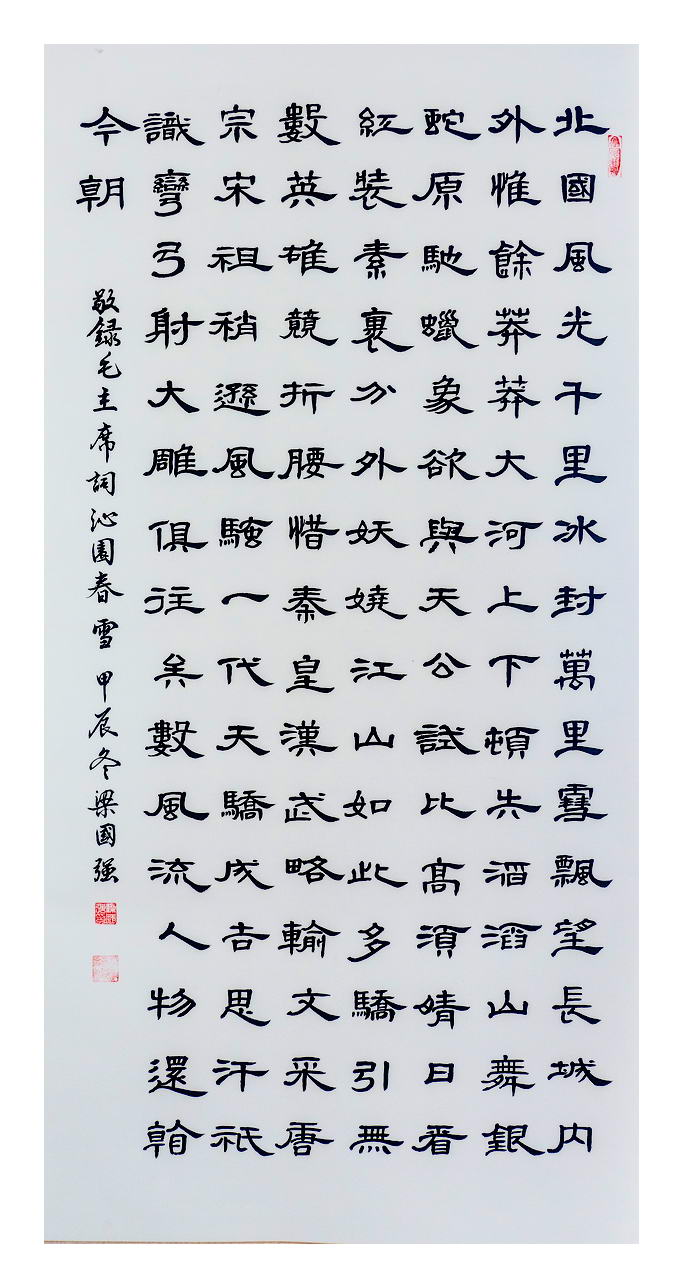 北國風光千里冰封萬里雪飄望長城内
外惟餘莽莽大河上下頓失滔滔山舞銀
蛇原馳蠟象欲與天公試比高須晴日看
紅裝素裹分外妖嬈江山如此多驕引無
數英雄競折腰惜秦皇漢武略輸文采唐
宗宋祖稍遜風騷一代天驕成吉思汗祇
識彎弓射大雕俱往矣數風流人物還看
今朝
敬録毛主席詞沁園春雪 甲辰冬梁國强